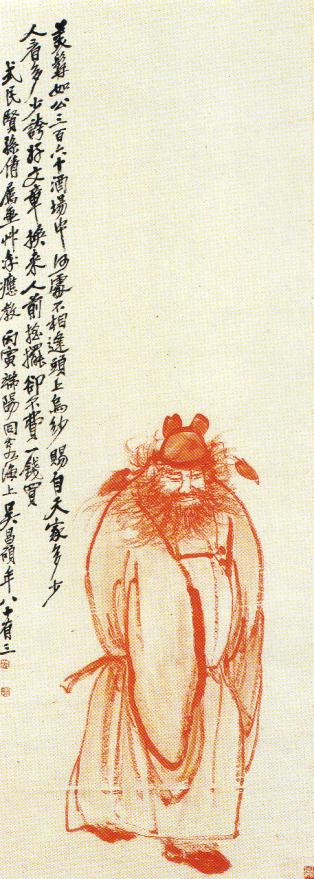 美髯如公三百六十酒場中何處不相逢頭上烏紗賜自天家多少
人看多少誇好文章換來人前搖擺卻不費一錢買
式民賢孫倩屬應教丙寅端陽同客海上吳昌碩年八十有三